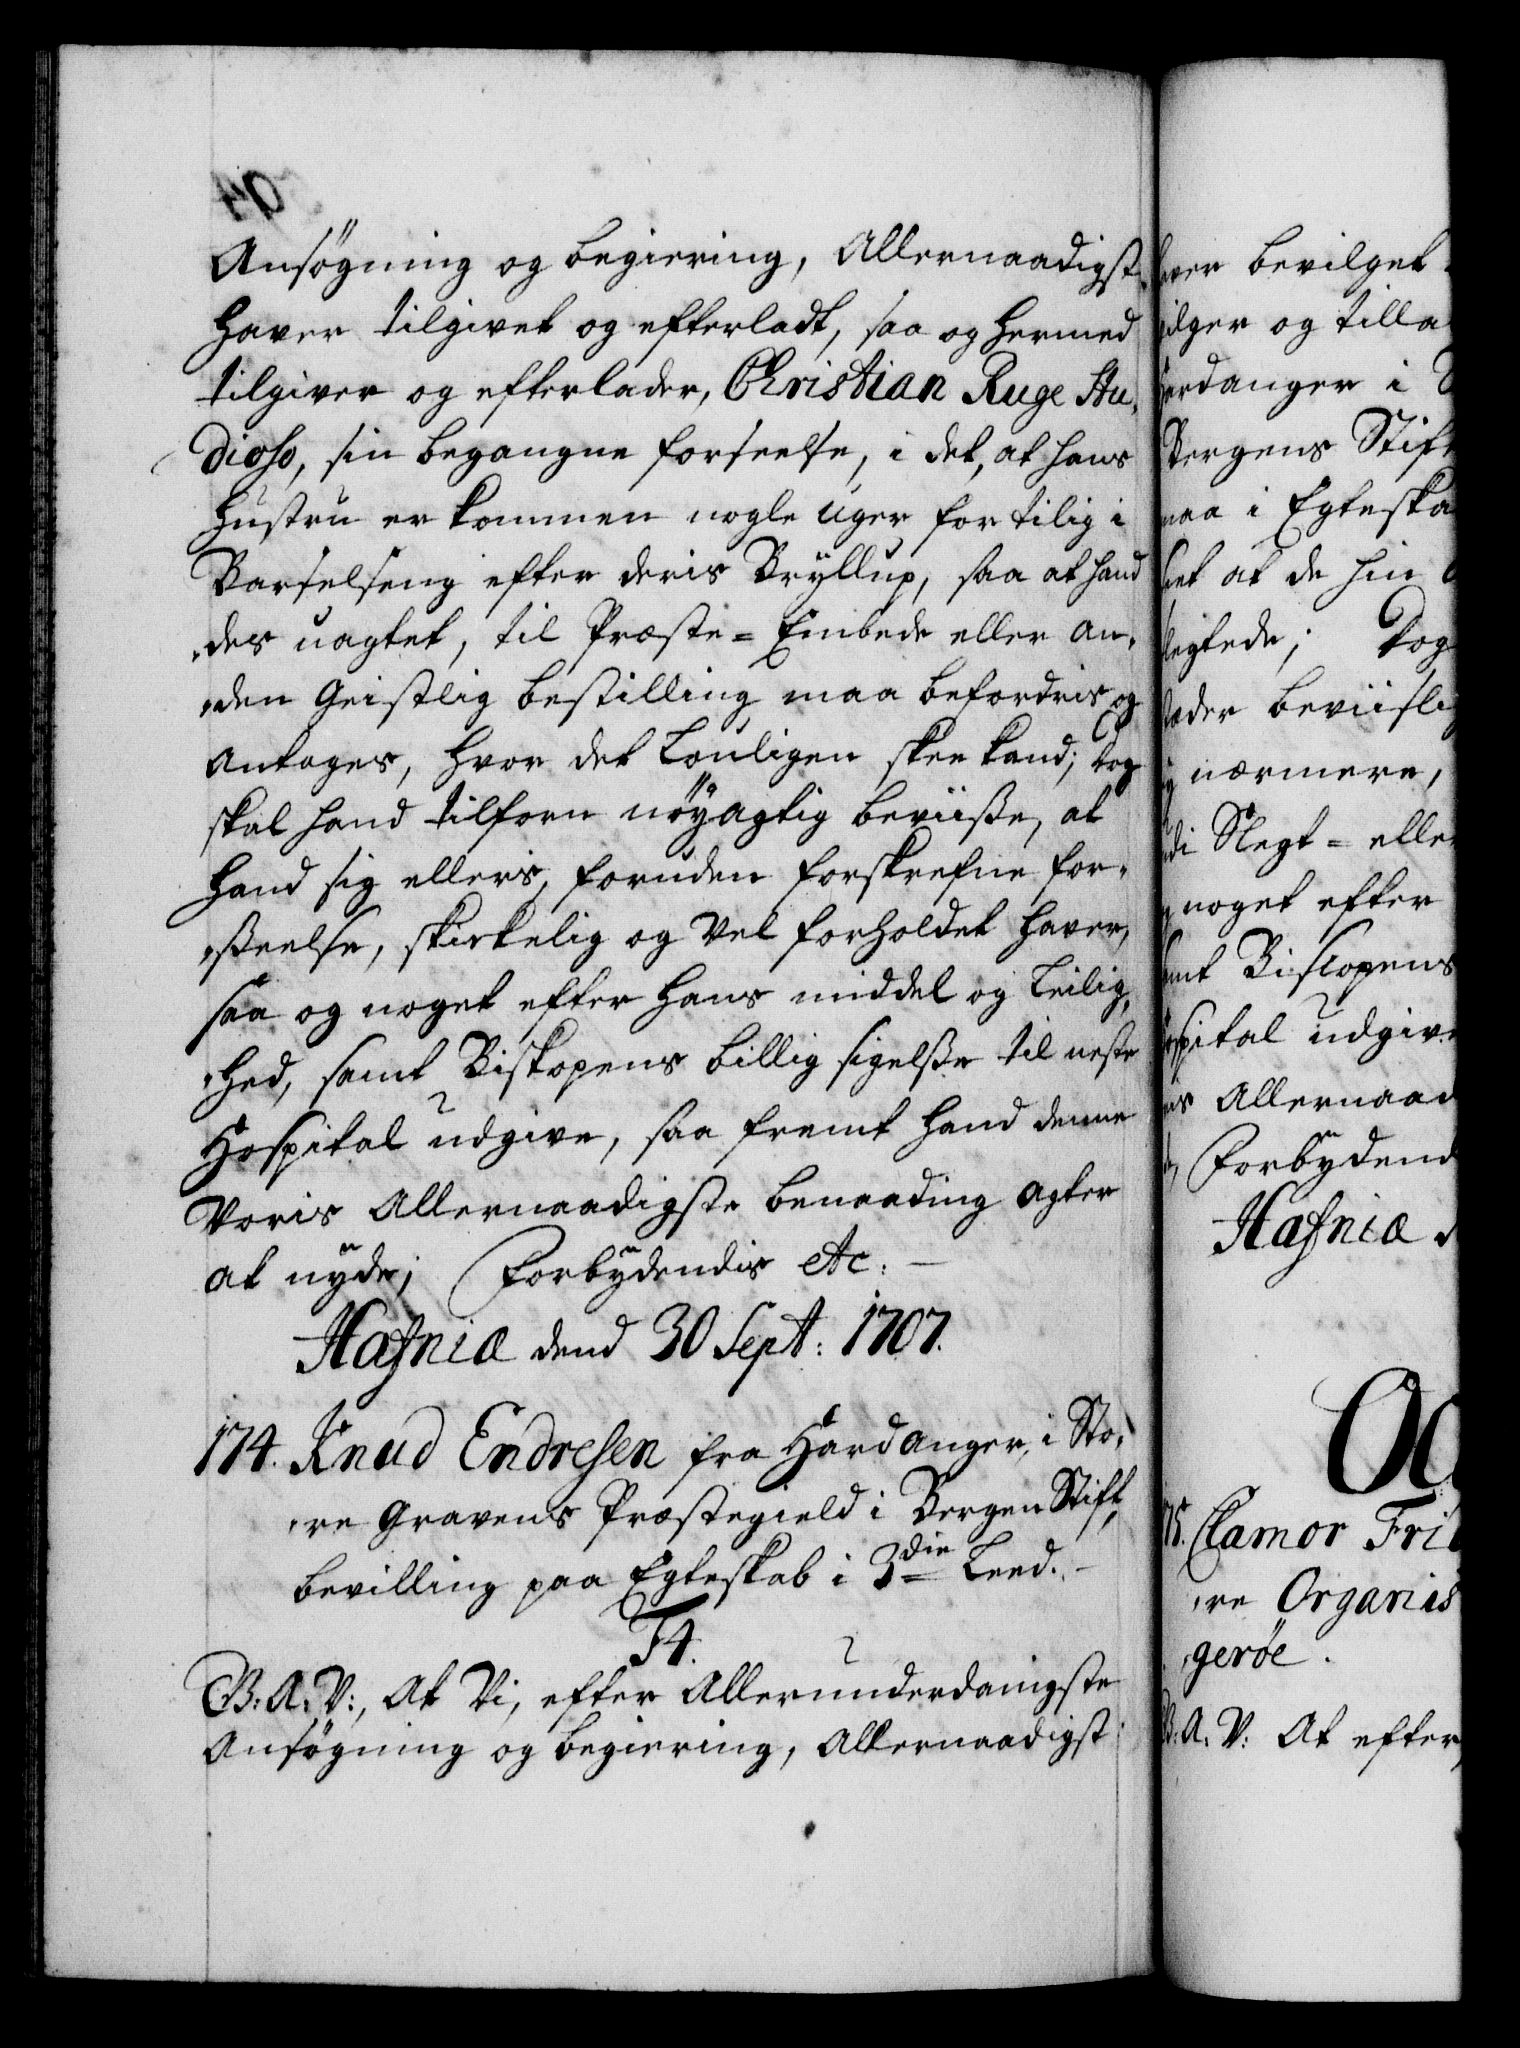 Ansøgning og begiering, Allernaadigst
haver tilgivet og efterladt, saa og hermed
tilgiver og efterlader, Christian Ruge Stu,
dioso, sin begangne forseelse, i det, at hans
Hustru er kommen nogle Uger for tilig i
Barselseng efter deris Bryllup, saa at hand
,des uagtet, til Præste= Embede eller an,
,den Geistlig bestilling maa befordris og
antages, hvor det Louligen skee kand; dog
skal hand tilforn nøyagtig beviiße, at
hand sig ellers, foruden forskrefne for,
,ßeelse, skikkelig og vel forholdet haver,
saa og noget efter hans middel og Leilig,
,hed, samt Biskopens billig sigelße til neste
Hospital udgive, saa fremt hand denne
Voris Allernaadigste benaading agter
at nyde; Forbydendis etc: —
Hafniæ dend 30 Sept: 1707.
174. Knud Endresen fra Hardanger, i Sto,
,re Gravens Præstegield i Bergen Stift,
bevilling paa Egteskab i 3die Leed. –
F4.
G: B: A: V:, At Vi, efter Allerunderdanigste
Ansøgning og begiering, Allernaadigst
haver bevilget
vilger og tilla
Hardanger i
Bergens Stift
maa i Egteska
set at de hin
slegtede; dog
beviislig
nærmere,
udi Slegt= eller
noget efter
samt Biscopens
Hospital udgive
Allernaad
Forbydend
Hafniæ d
Oc
175. Clamor Fri
,re Organis
,gerøe.
B: A: V: At efter